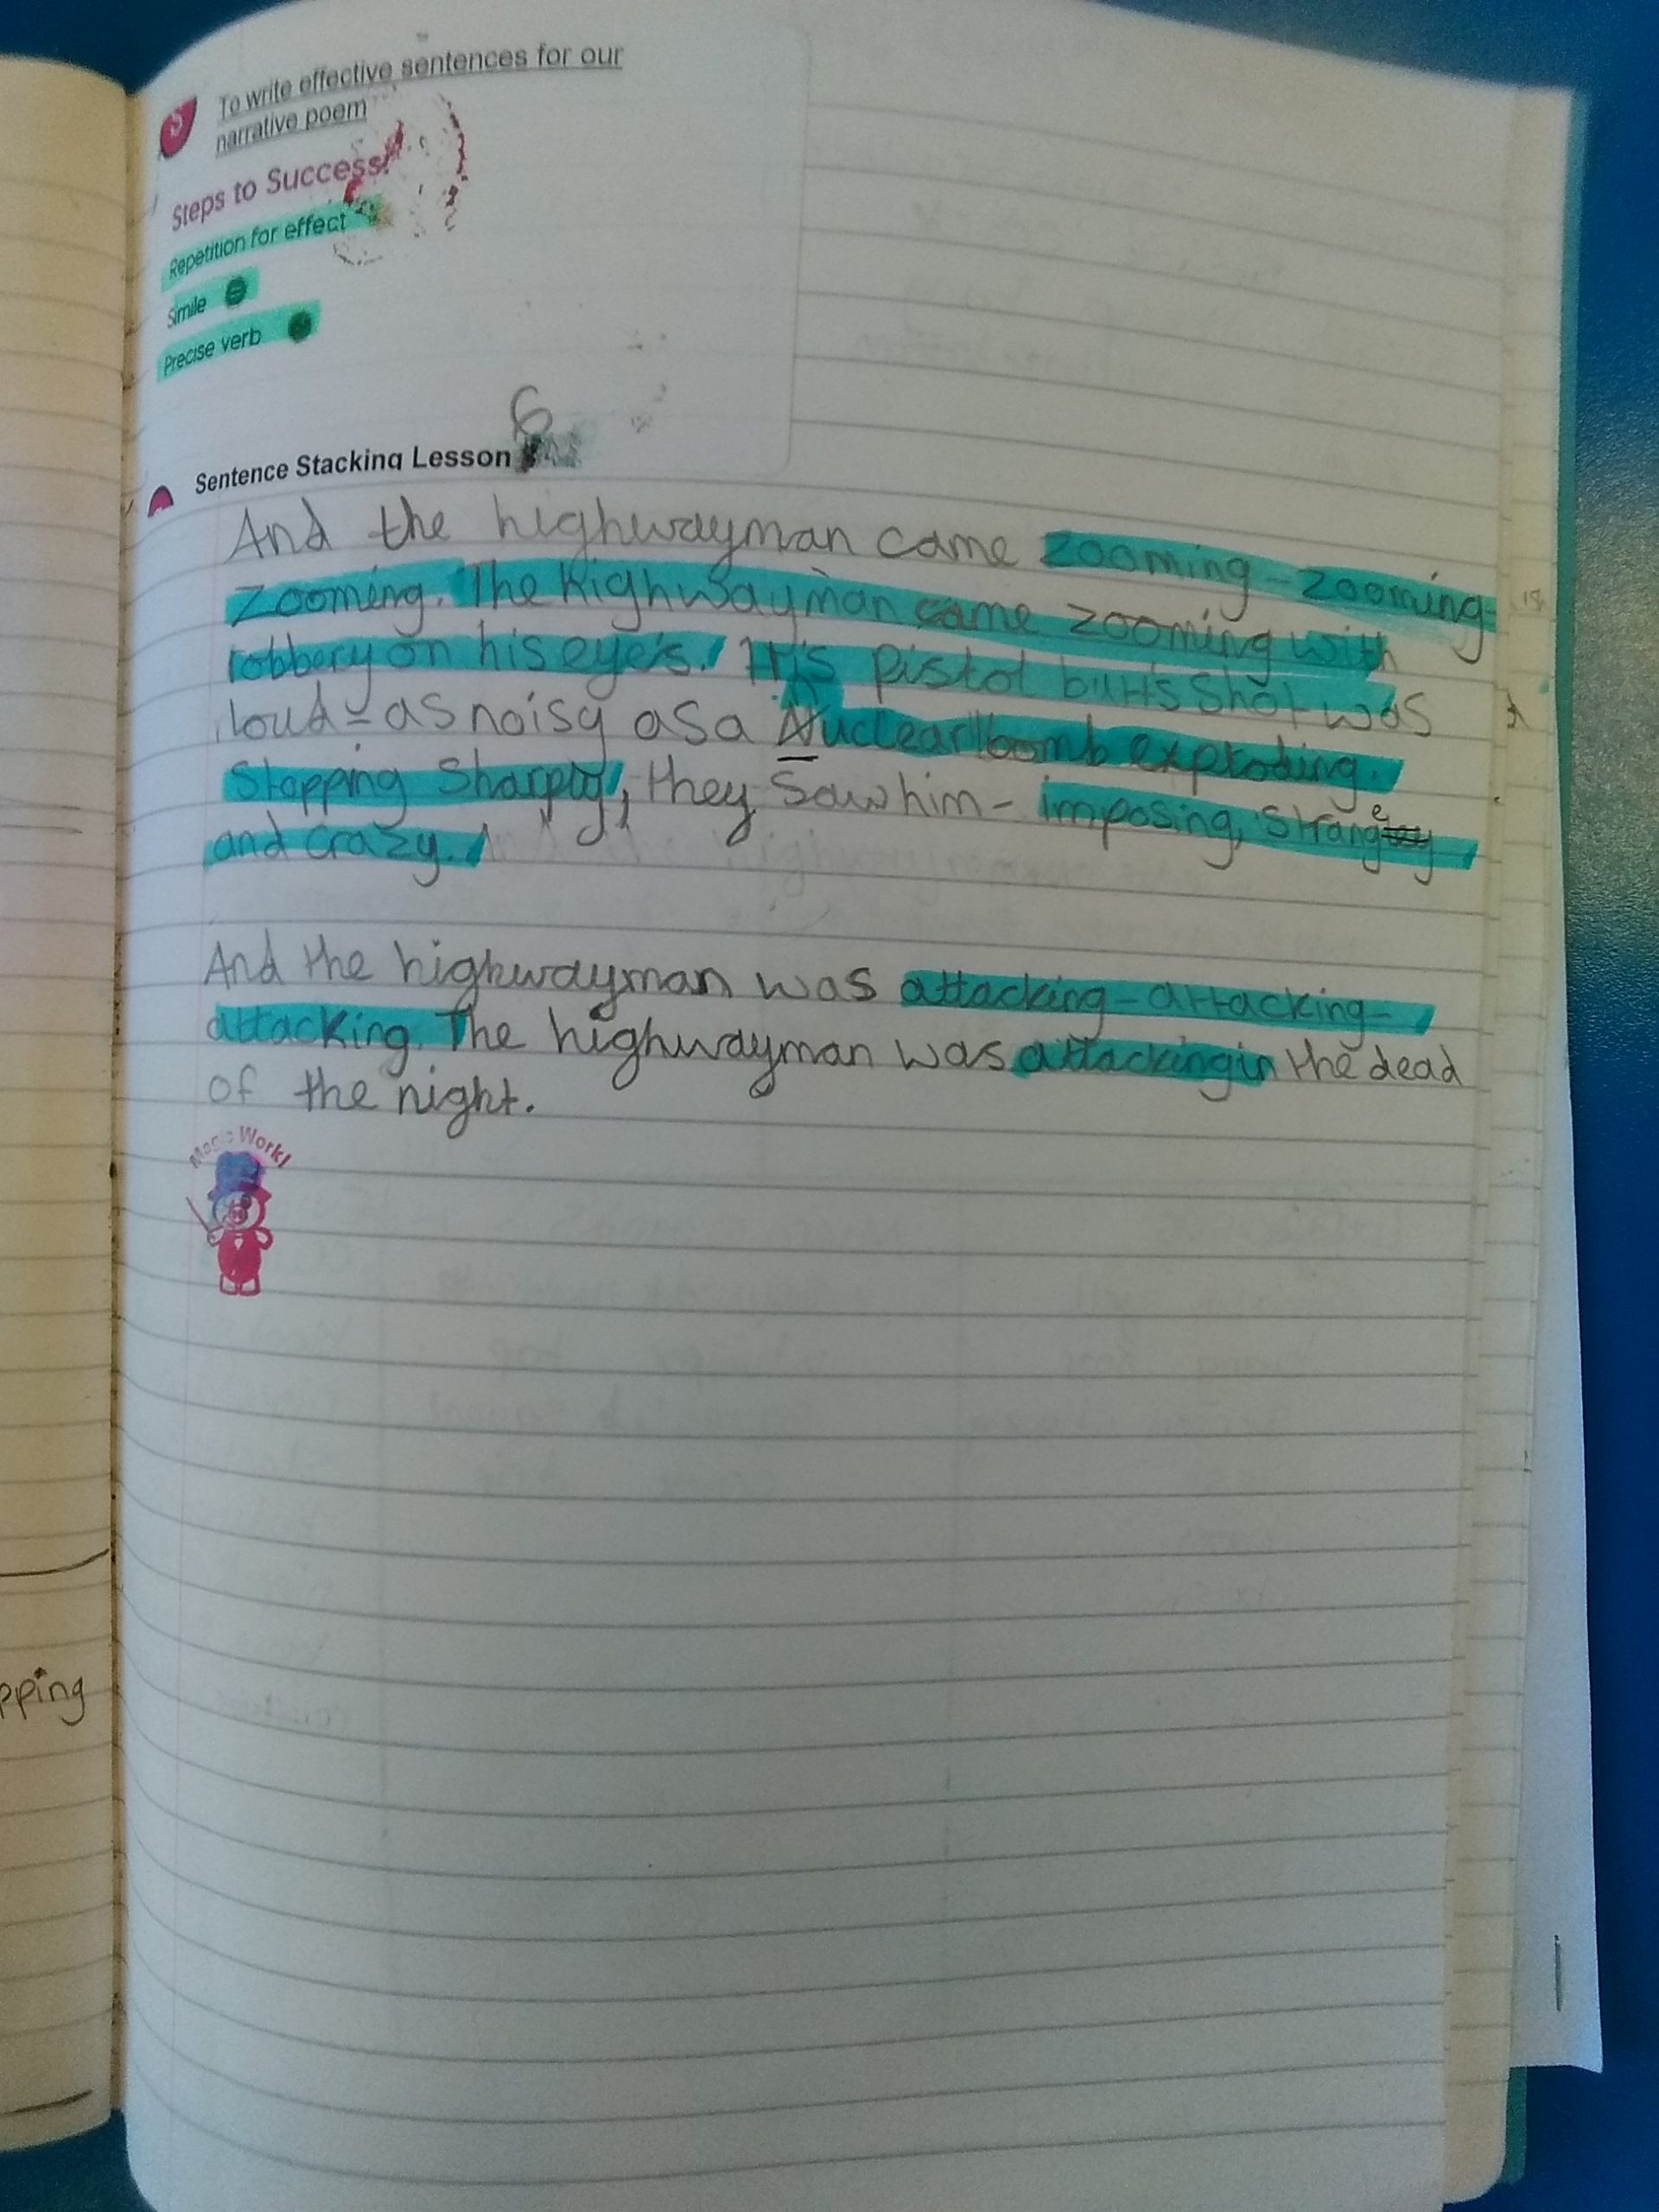 To write effective sentences for our
narrative poem
Steps to Success!
Repetition for effect
Simile
Precise verb
6
Sentence Stacking Lesson
And the highwayman came zooming - zooming-
zooming. The highwayman came zooming with
robbery on his eye's. His pistol butt's shot was
loud - as noisy as a Nuclear bomb exploding.
Stopping Sharply, they saw him - imposing, strange
and crazy.
And the highwayman was attacking - attacking -
attacking. The highwayman was attacking in the dead
of the night.
Magic Work!
pping